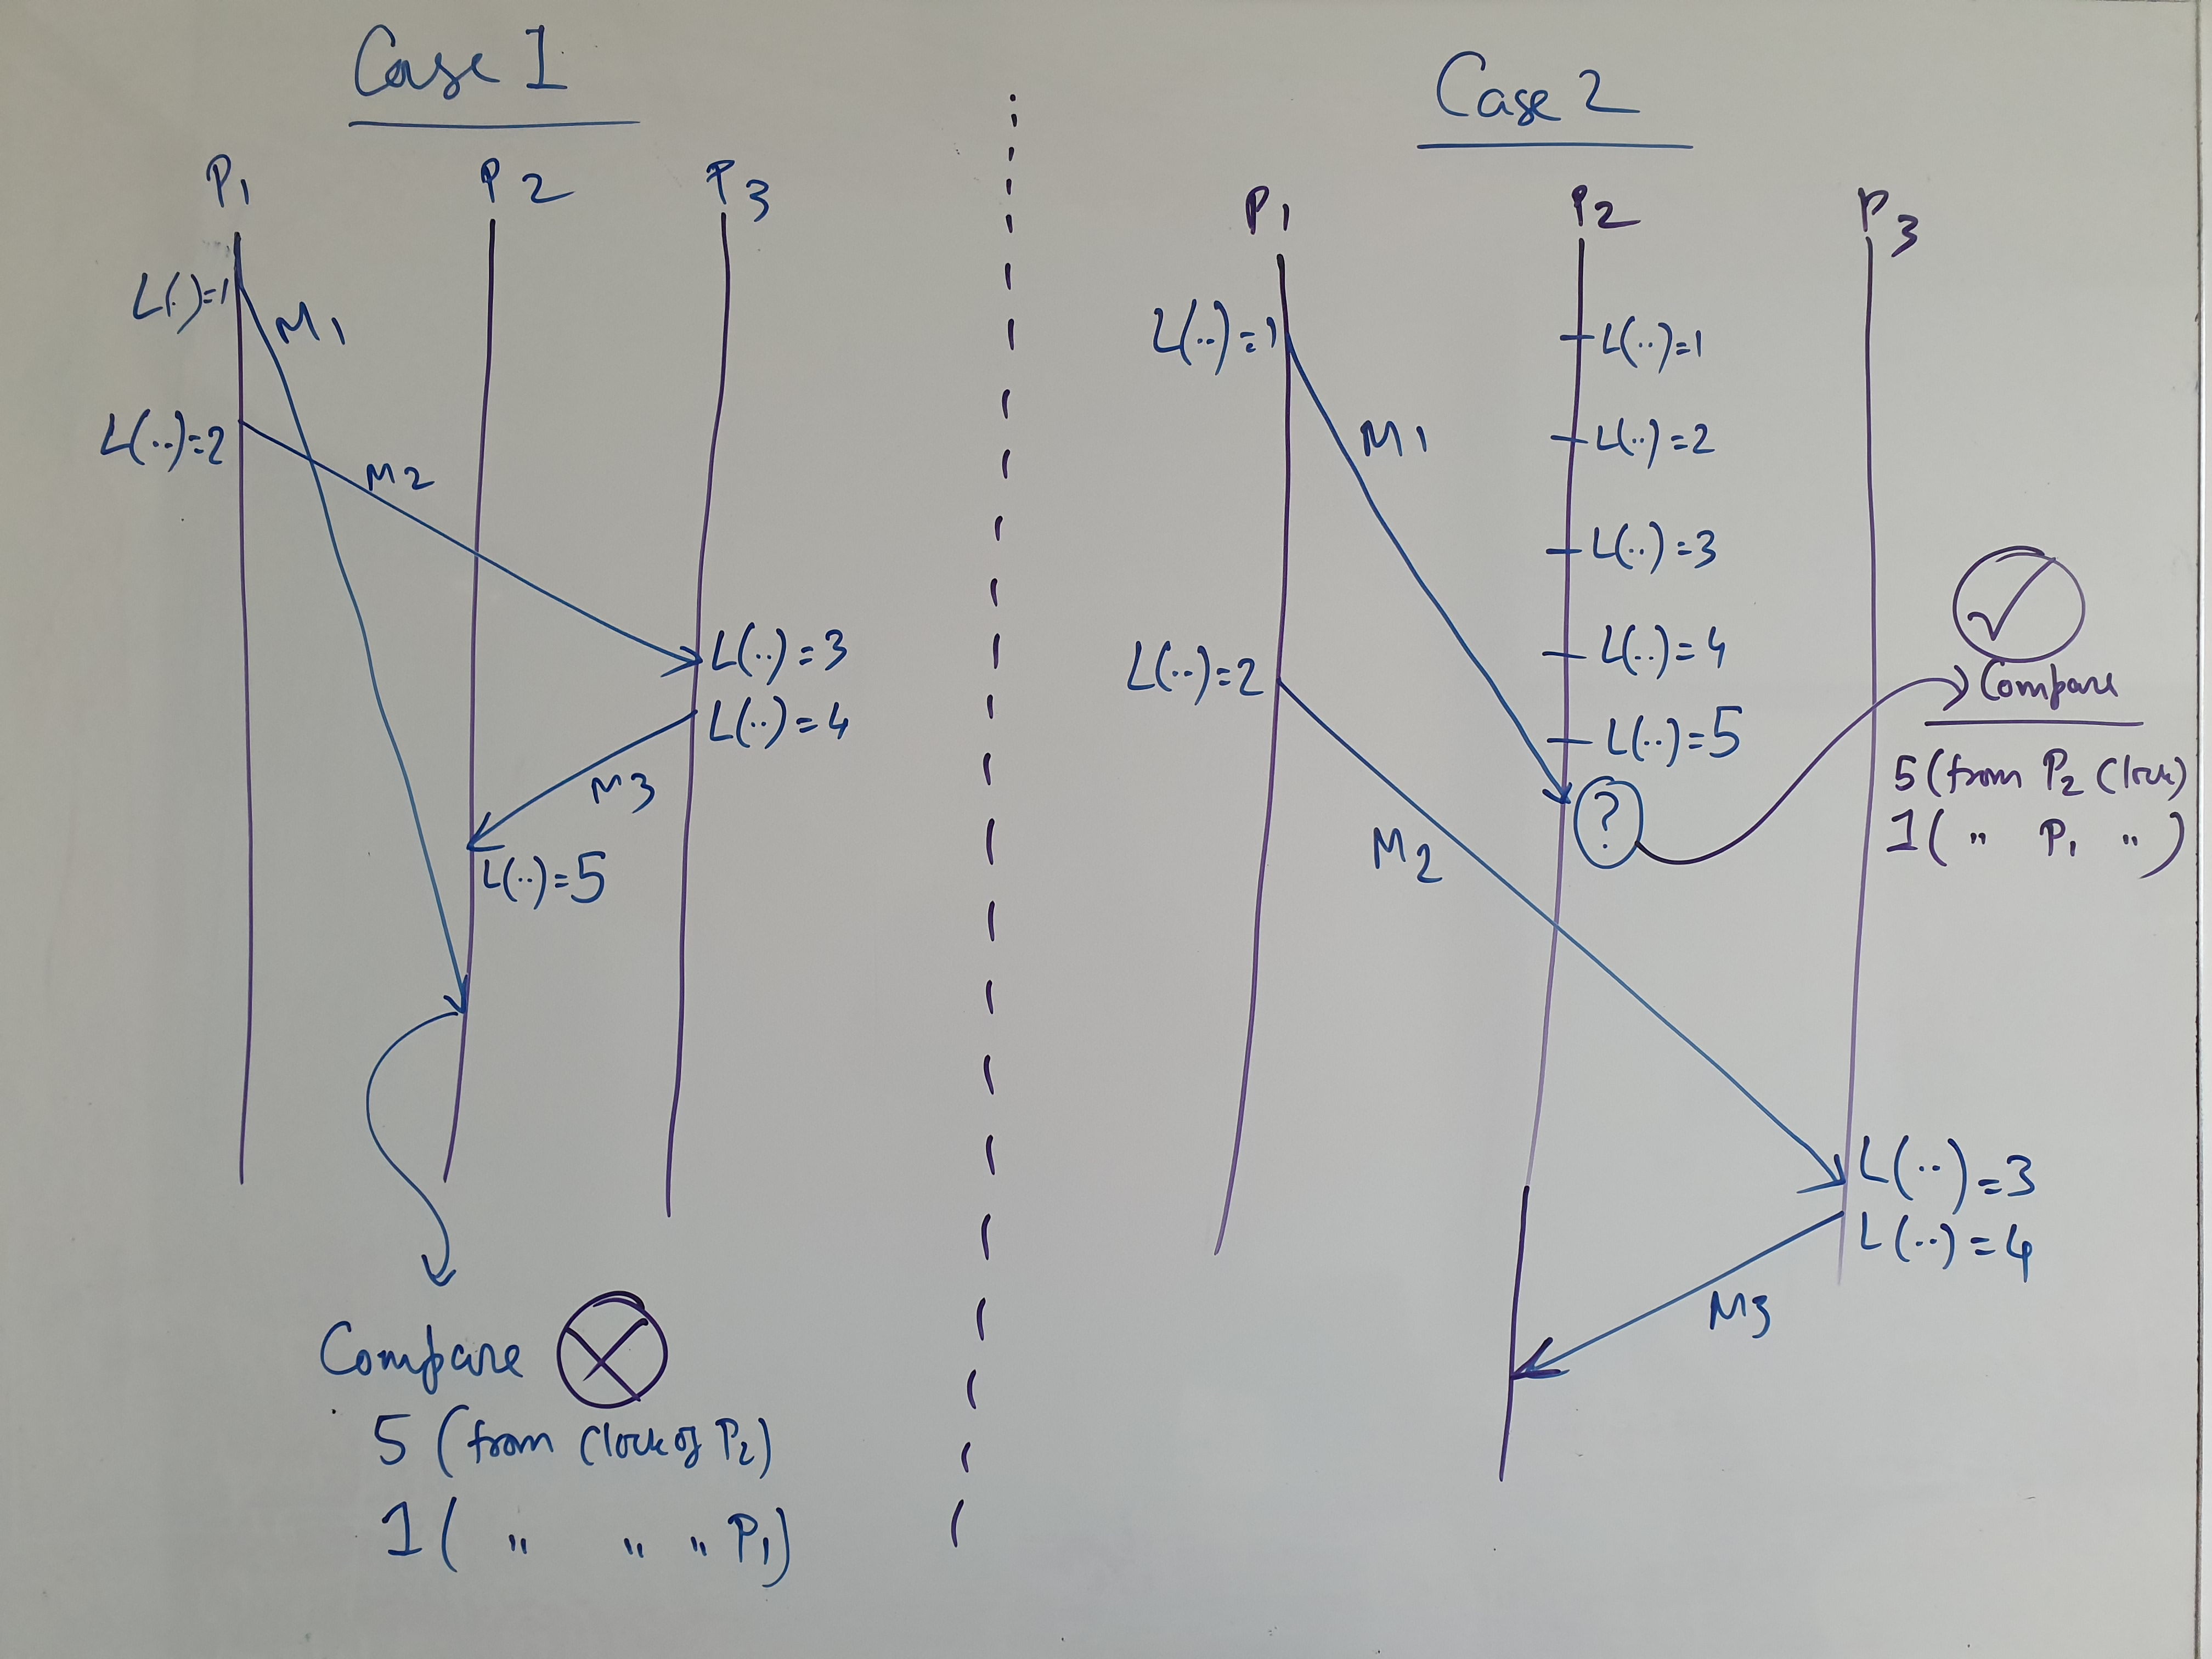 Case 1
P1 P2 P3
L(.)=1
M1
L(..)=2
M2
L(..)=3
L(..)=4
M3
L(..)=5
Compare
5 (from Clock of P2)
1 ( " " " P1)
Case 2
P1 P2 P3
L(..)=1
L(..)=1
M1
L(..)=2
L(..)=3
L(..)=4
L(..)=2
L(..)=5
?
Compare
5 (from P2 Clock)
1 ( " P1 " )
M2
L(..)=3
L(..)=4
M3